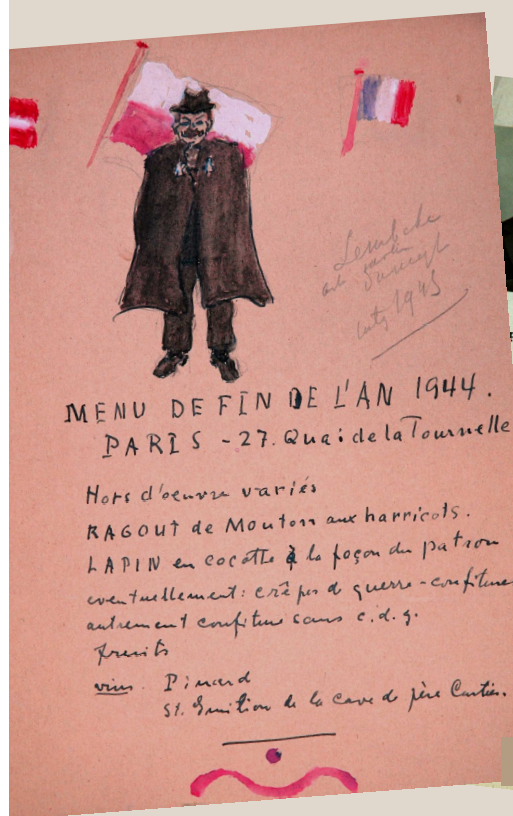 1945
MENU DE FIN DE L'AN 1944.
PARIS - 27. Quai de la Tournelle
Hors d'oeuvre variés
RAGOUT de Mouton aux harricots.
LAPIN en cocotte à la façon du patron
eventuellement: crêpes de guerre - confiture
autrement confiture sans c.d.g.
fruits
vins. Pinard
St. de la cave de père Cartier.